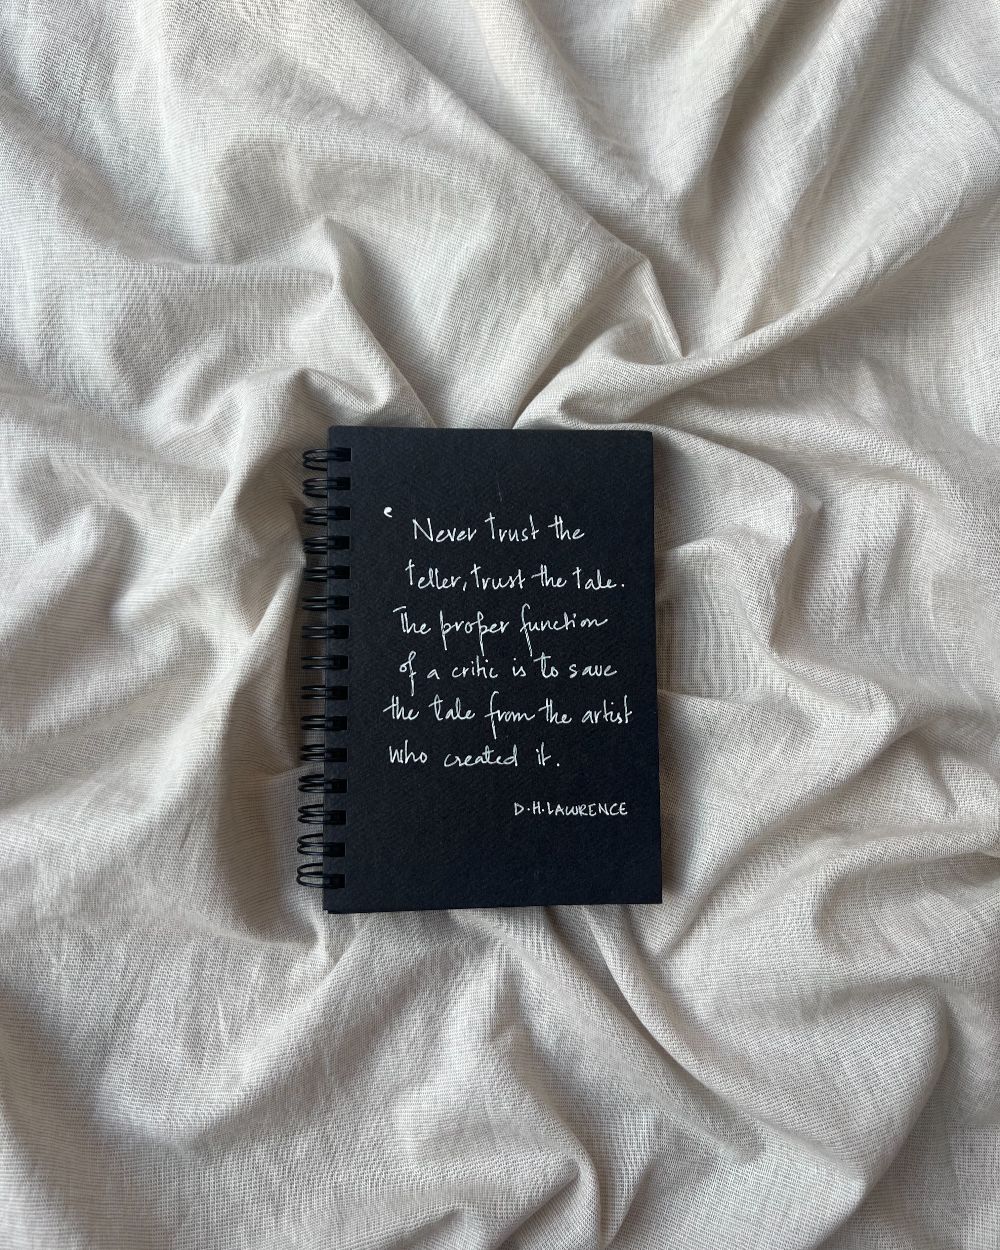 ‘ Never trust the
teller, trust the tale.
The proper function
of a critic is to save
the tale from the artist
who created it.
D.H.LAWRENCE